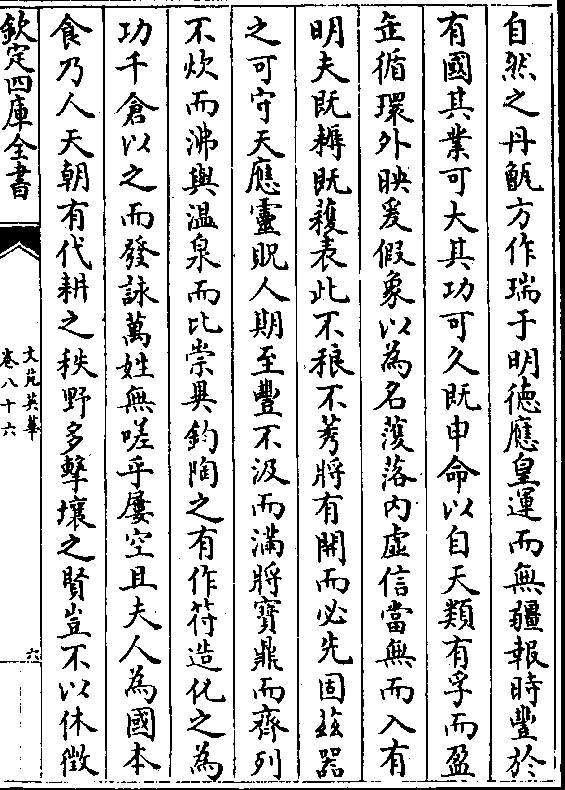 自然之丹甑方作瑞于明徳應皇運而無疆報時豐於
有國其業可大其功可久既申命以自天類有孚而盈
缶循環外映爰假象以為名濩落内虚信當無而入有
明夫既耨既穫表此不稂不莠將有開而必先固兹器
之可守天應靈貺人期至豐不汲而滿將寳鼎而齊列
不炊而沸與温泉而比崇異鈞陶之有作符造化之為
功千倉以之而發詠萬姓無嗟乎屢空且夫人為國本
食乃人天朝有代耕之秩野多擊壤之賢豈不以休徴
欽定四庫全書
文苑英華
卷八十六
六